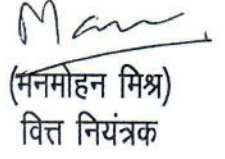 (मनमोहन मिश्र)
वित्त नियंत्रक